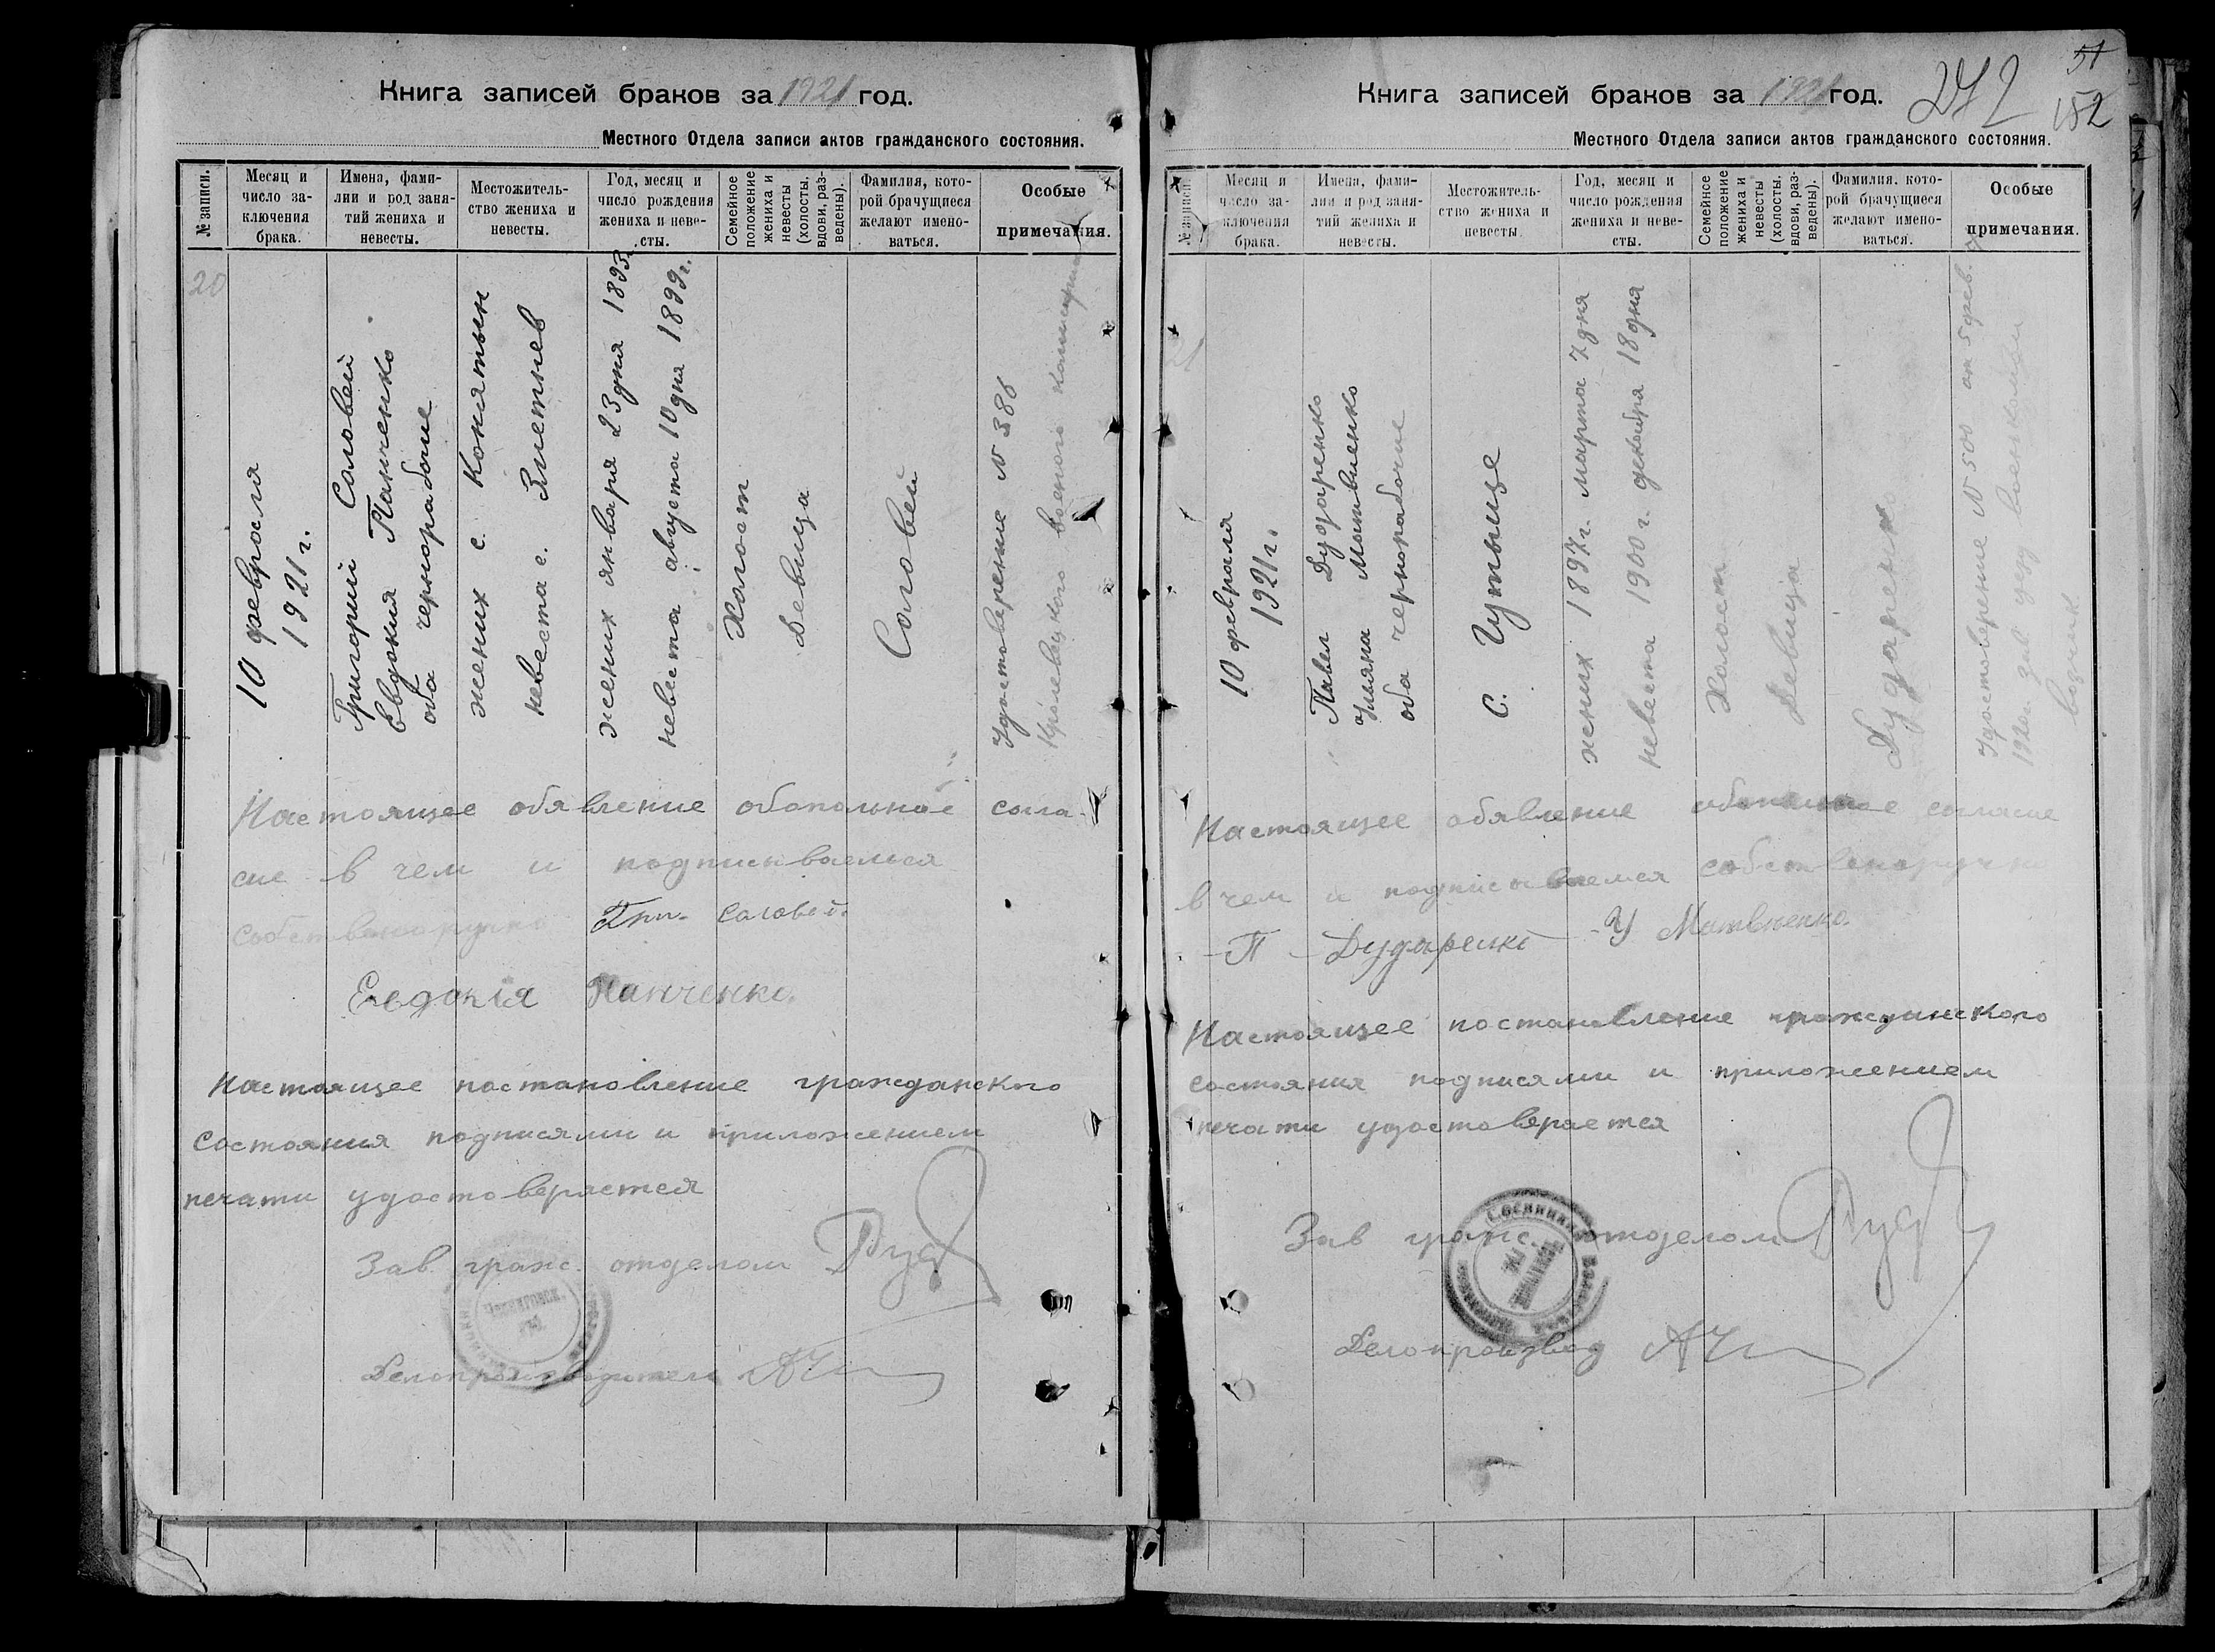 Книга записей браков за 1921 год.
Местного Отдела записи актов гражданского состояния.
№ записи.
Месяц и число заключения брака.
Имена, фамилии и род занятий жениха и невесты.
Местожительство жениха и невесты.
Год, месяц и число рождения жениха и невесты.
Семейное положение жениха и невесты (холосты, вдовы, разведены).
Фамилия, которой брачущиеся желают именоваться.
Особые примечания.
20
10 февраля
1921 г.
Григорий Соловей
Евдокия Панченко
оба чернорабочие
жених с. Конятын
невеста с.
жених января 23 дня 1893
невеста августа 10 дня 1899 г.
Холост
Девица
Соловей
Удостоверение N 386
Кролевецкого военного
Настоящее обявление обопольное согла-
сие в чем и подписываемся
собственоручно Гри. Соловей.
Евдокія Панченко.
Настоящее постановление гражданского
состояния подписями и приложением
печати удостоверяется
Зав. граж. отделом
Делопроизводитель
Книга записей браков за 1921 год.
242
51
152
Местного Отдела записи актов гражданского состояния.
№ записи
Месяц и число заключения брака.
Имена, фамилии и род занятий жениха и невесты.
Местожительство жениха и невесты.
Год, месяц и число рождения жениха и невесты.
Семейное положение жениха и невесты (холосты, вдовы, разведены).
Фамилия, которой брачущиеся желают именоваться.
Особые примечания.
10 февраля
1921 г.
Павел Дударенко
Ульяна Матвиенко
оба чернорабочие
с.
жених 1897 г. марта 7 дня
невеста 1900 г. декабря 18 дня
Холост
Девица
Дударенко
Удостоверение N 500 от 5 фев.
Настоящее обявление обопольное согласие
в чем и подписываемся собственоручно
П Дударенко У Матвиенко.
Настоящее постановление гражданского
состояния подписями и приложением
печати удостоверяется
Зав граж. отделом
Делопроизвод